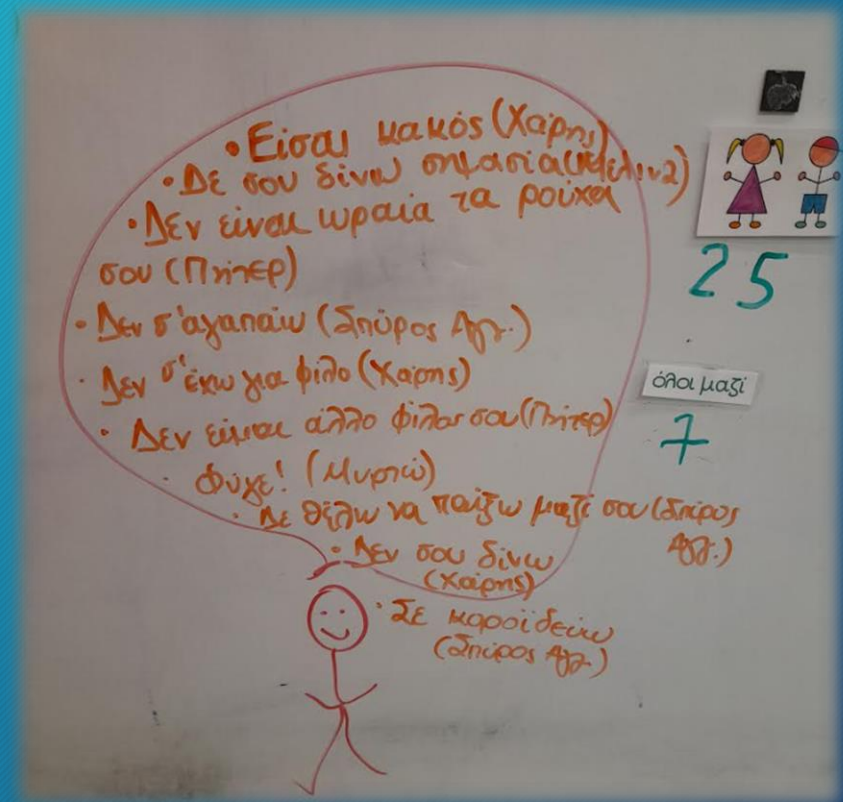 • Είσαι κακός (Χάρης)
• Δε σου δίνω σημασία (Μελίνα)
• Δεν είναι ωραία τα ρούχα
σου (Πήτερ)
• Δεν σ'αγαπάω (Σπύρος Αγγ.)
• Δεν σ'έχω για φίλο (Χάρης)
• Δεν είμαι άλλο φίλος σου (Πήτερ)
• Φύγε! (Μυρτώ)
• Δε θέλω να παίξω μαζί σου (Σπύρος
Αγγ.)
• Δεν σου δίνω
(Χάρης)
• Σε κοροϊδεύω
(Σπύρος Αγγ.)
25
όλοι μαζί
7